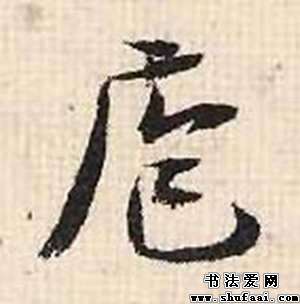 虐
书法爱网
www.shufaai.com